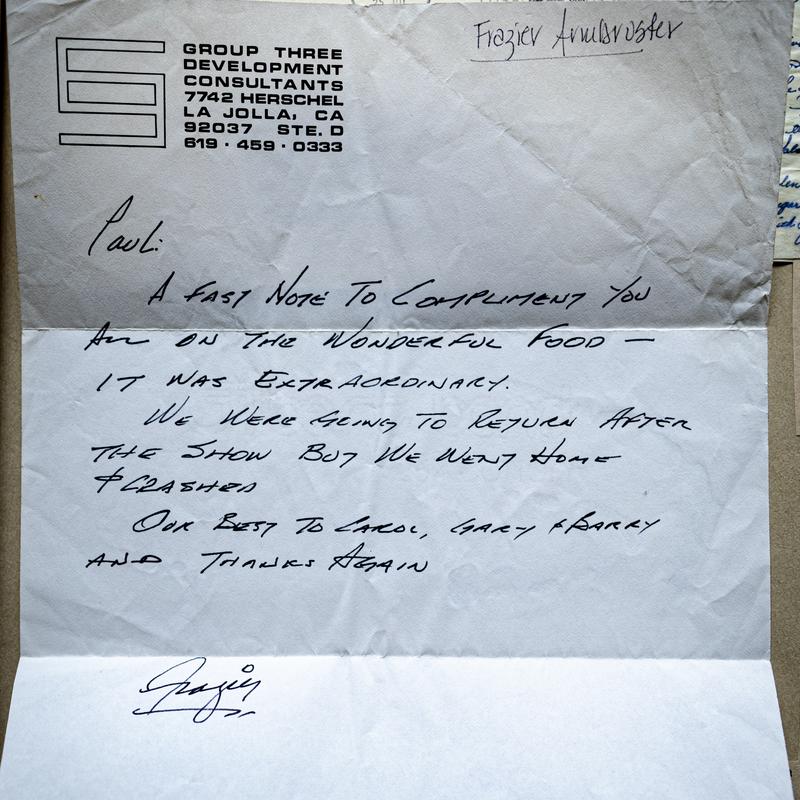 Frazier Armbruster
GROUP THREE
DEVELOPMENT
CONSULTANTS
7742 HERSCHEL
LA JOLLA, CA
92037 STE. D
619 · 459 · 0333
Paul:
A FAST NOTE TO COMPLIMENT YOU
ALL ON THE WONDERFUL FOOD —
IT WAS EXTRAORDINARY.
WE WERE GOING TO RETURN AFTER
THE SHOW BUT WE WENT HOME
& CRASHED
OUR BEST TO CAROL, GARY & BARRY
AND THANKS AGAIN
Frazier